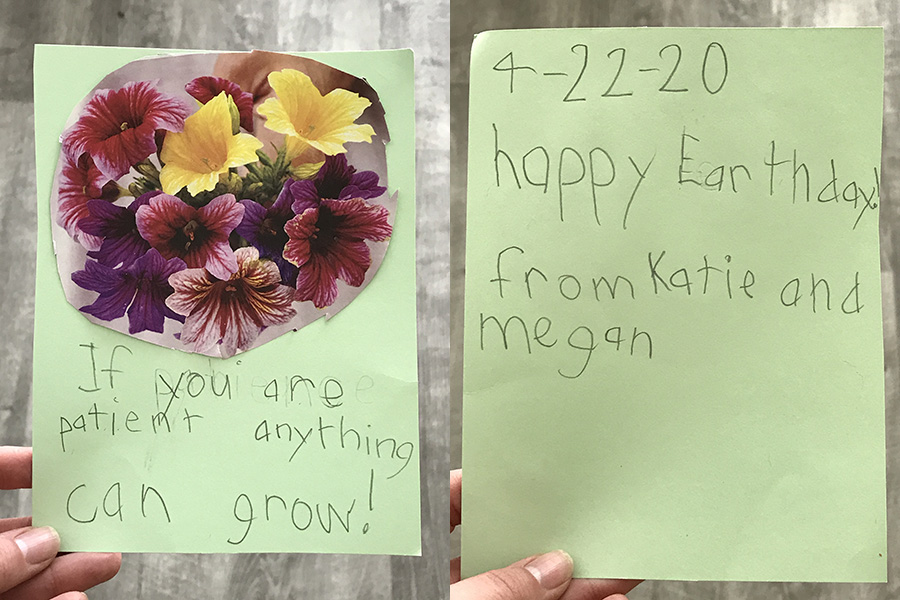 If you are
patient anything
can grow!
4-22-20
happy Earthday!
from Katie and
megan